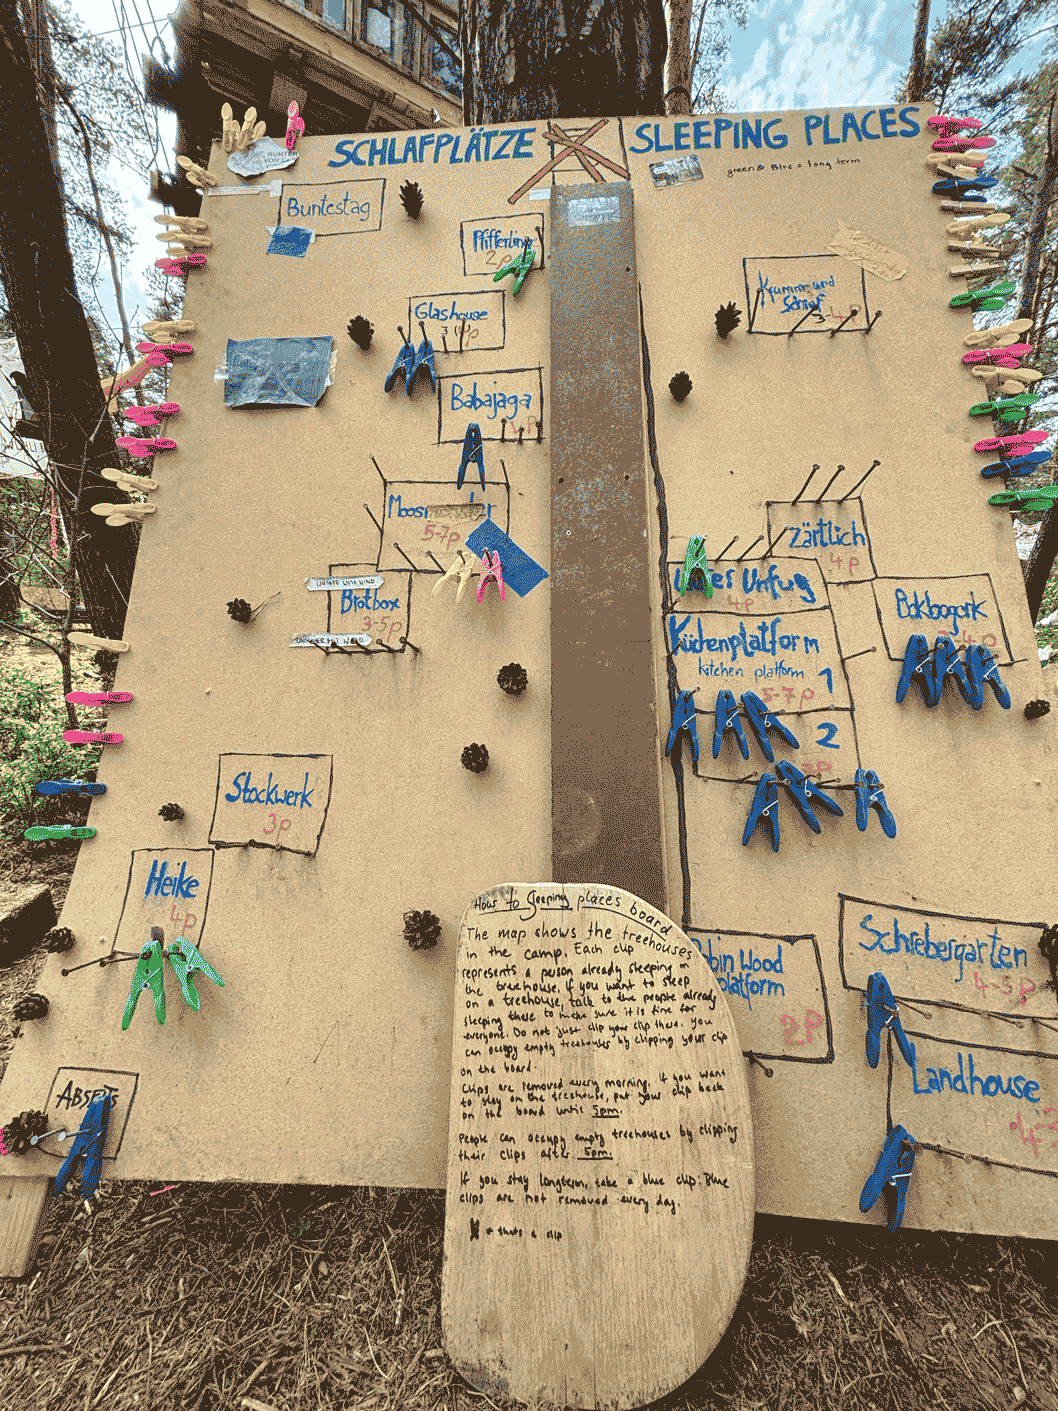 SCHLAFPLÄTZE
SLEEPING PLACES
green & Blue = long term
Buntestag
Pfifferling
2p
Glashouse
Krumm und
Schief
3-4p
Babajaga
Moos
5-7p
Zärtlich
4p
Unfug
4p
Brotbox
3-5p
Küchenplatform
kitchen platform 1
5-7p
2
Bokbogork
Stockwerk
3p
Heike
4p
Wood
platform
2P
Schrebergarten
4-5p
Landhouse
Abseits
How to sleeping places board
The map shows the treehouses
in the camp. Each clip
represents a person already sleeping on
the treehouse. if you want to sleep
on a treehouse, talk to the people already
sleeping there to make sure it is fine for
everyone. Do not just clip your clip there. You
can occupy empty treehouses by clipping your clip
on the board.
Clips are removed every morning. If you want
to stay on the treehouse, put your clip back
on the board until 5pm.
People can occupy empty treehouses by clipping
their clips after 5pm.
If you stay longterm, take a blue clip. Blue
clips are not removed every day.
= thats a clip